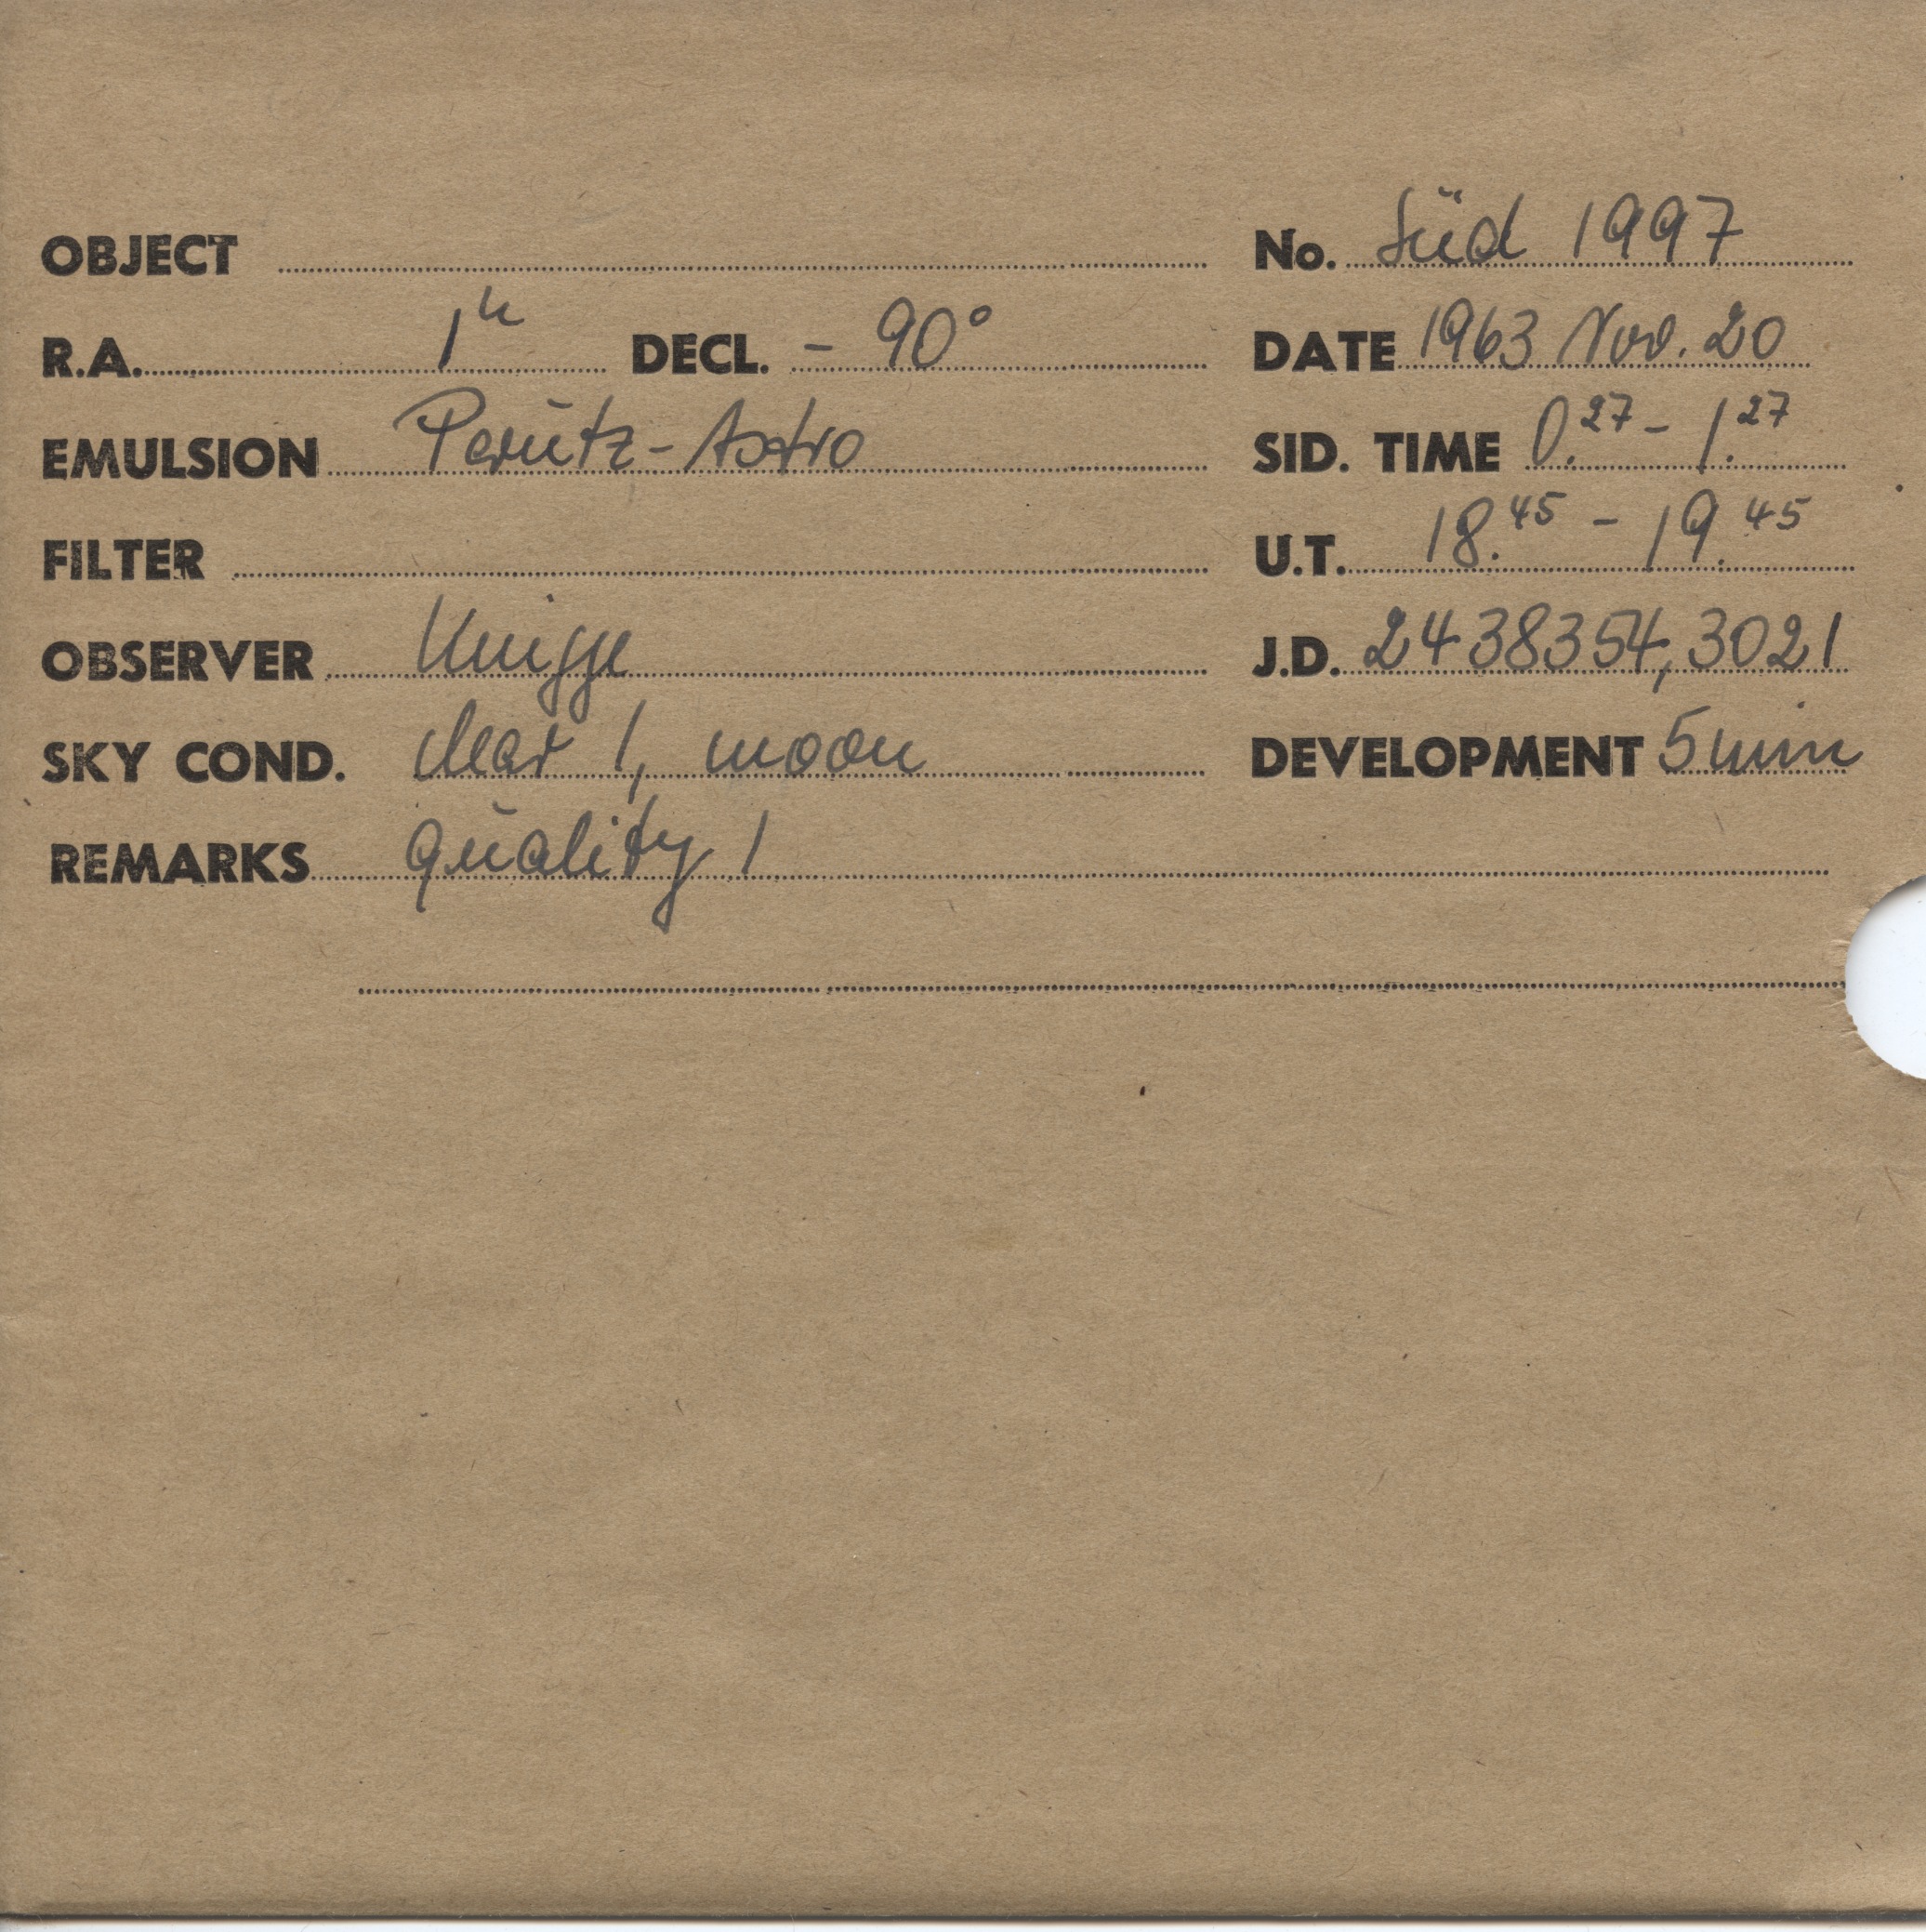 OBJECT No. Süd 1997
R.A. 1h DECL. - 90°
DATE 1963 Nov. 20
EMULSION Perutz-Astro
SID. TIME 0.27 - 1.27
FILTER
U.T. 18.45 - 19.45
OBSERVER Knigge
J.D. 2438354,3021
SKY COND. clear 1, moon
DEVELOPMENT 5 min
REMARKS quality 1